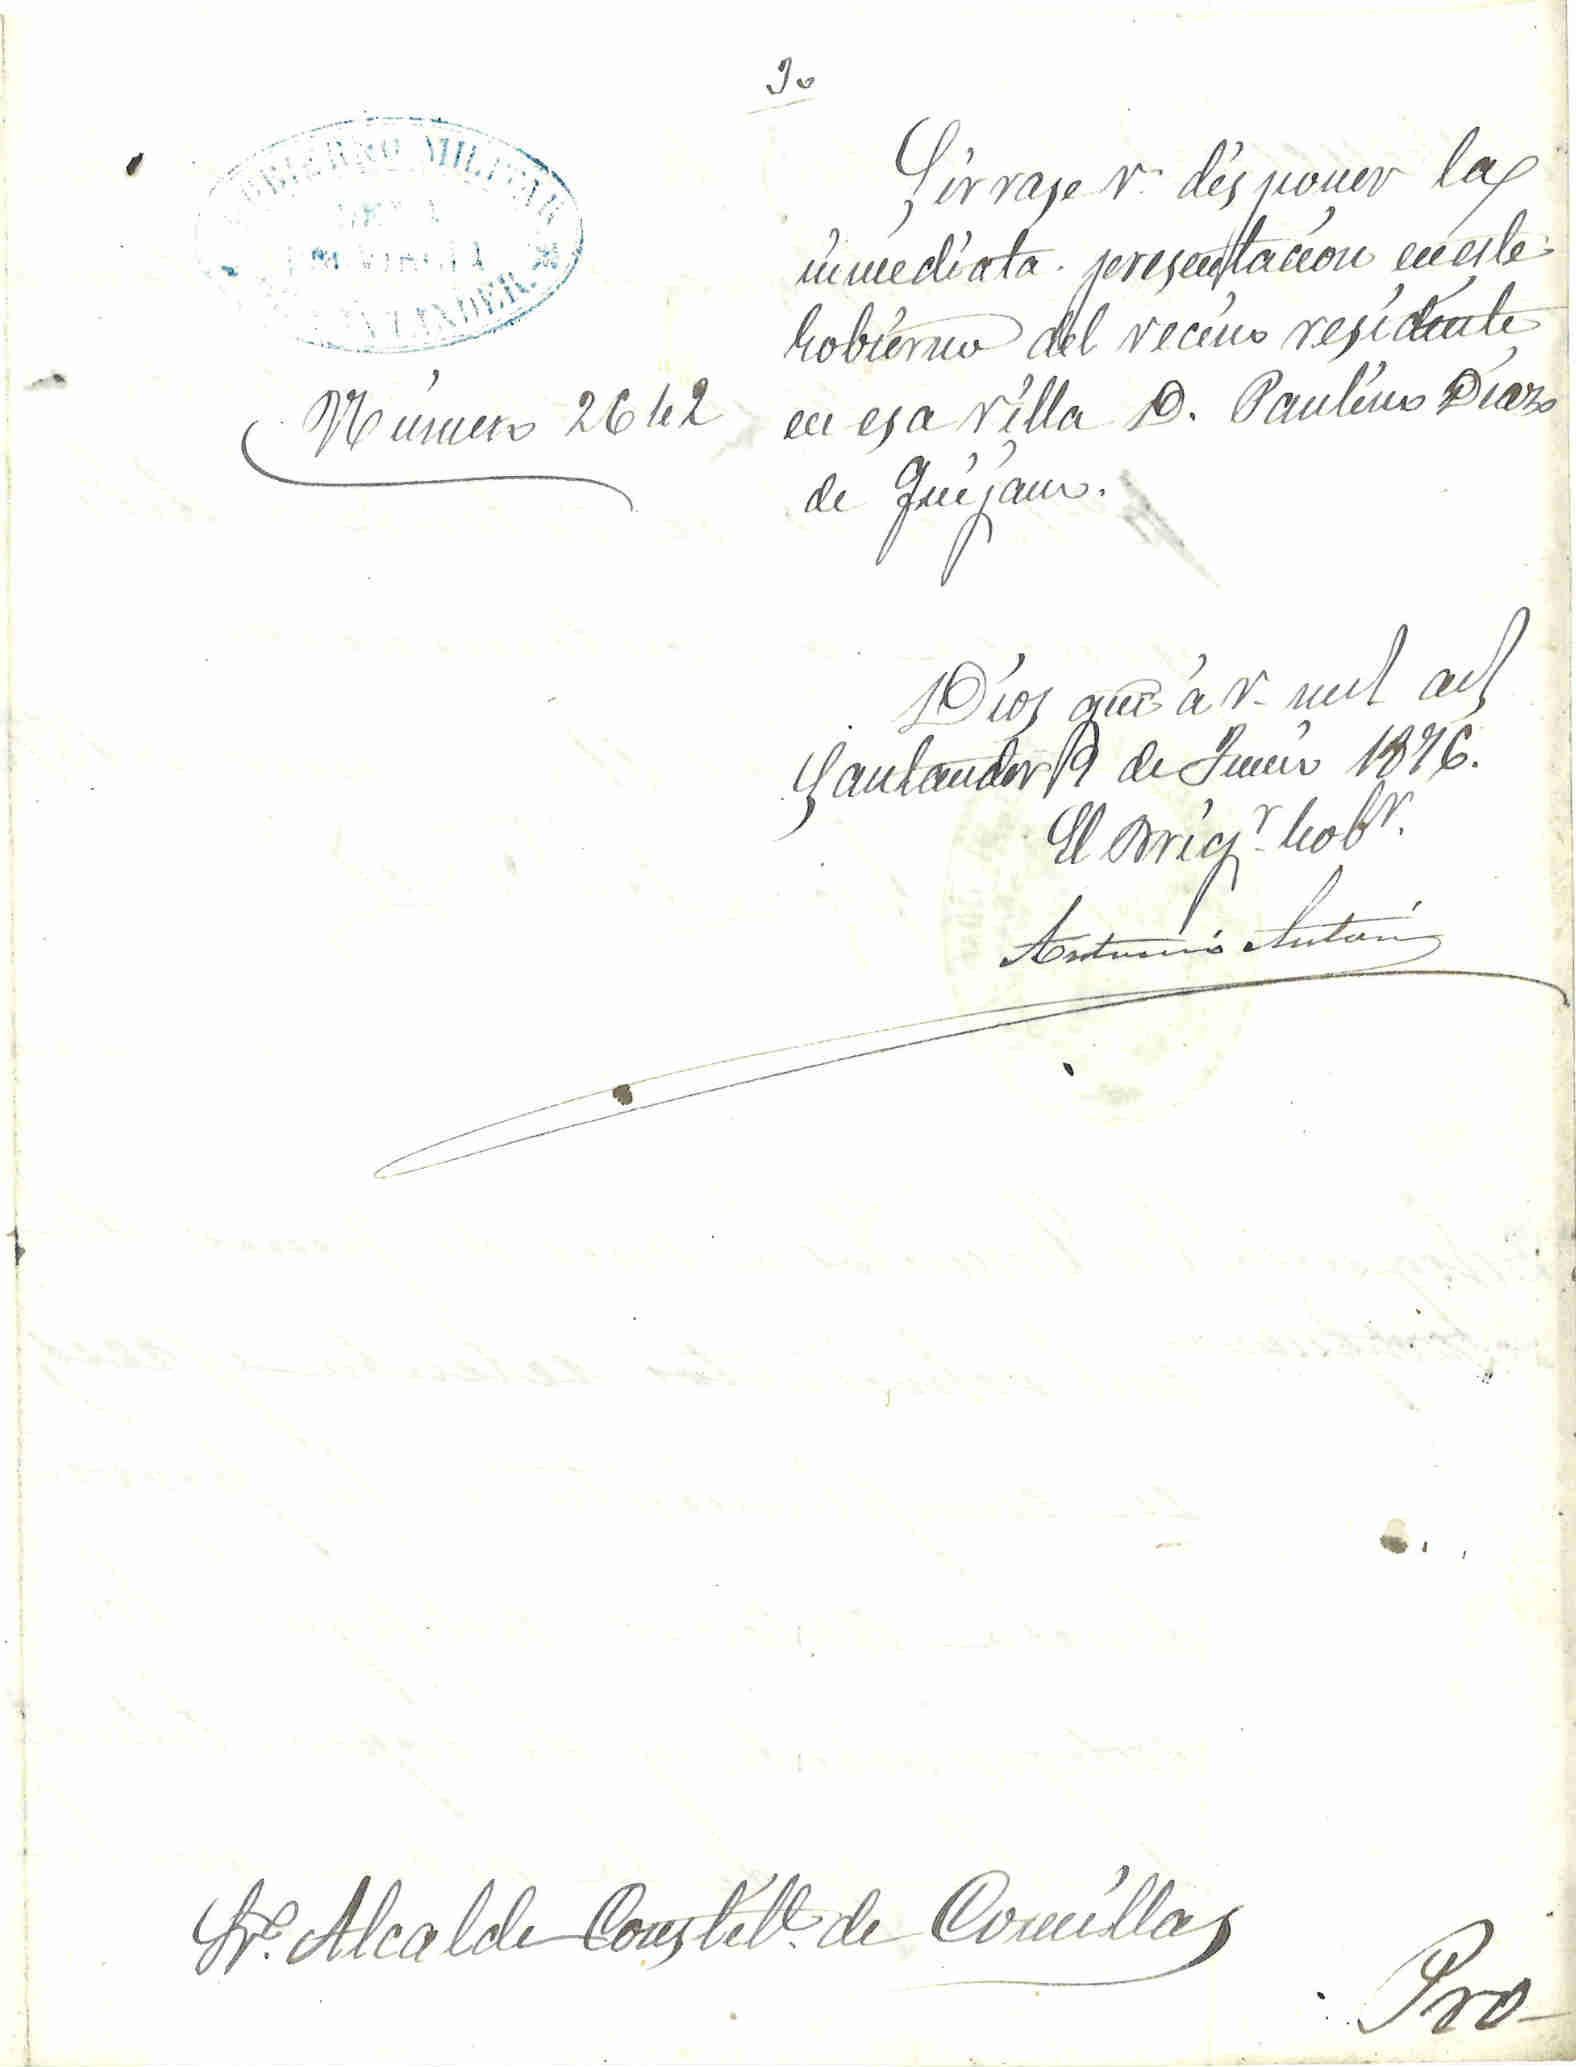 30
GOBIERNO MILITAR
DE LA
PROVINCIA
SANTANDER
Sirvase V. disponer la
inmediata presentacion en este
Gobierno del vecino residente
Número 2642
en esa villa D. Paulino Diaz
de Guijano.
Dios gue á V. muchos años
Santander 9 de Junio 1876.
El Brigr. Gobr.
Antonio Anton
Sr. Alcalde Constitl. de Comillas
Pro-